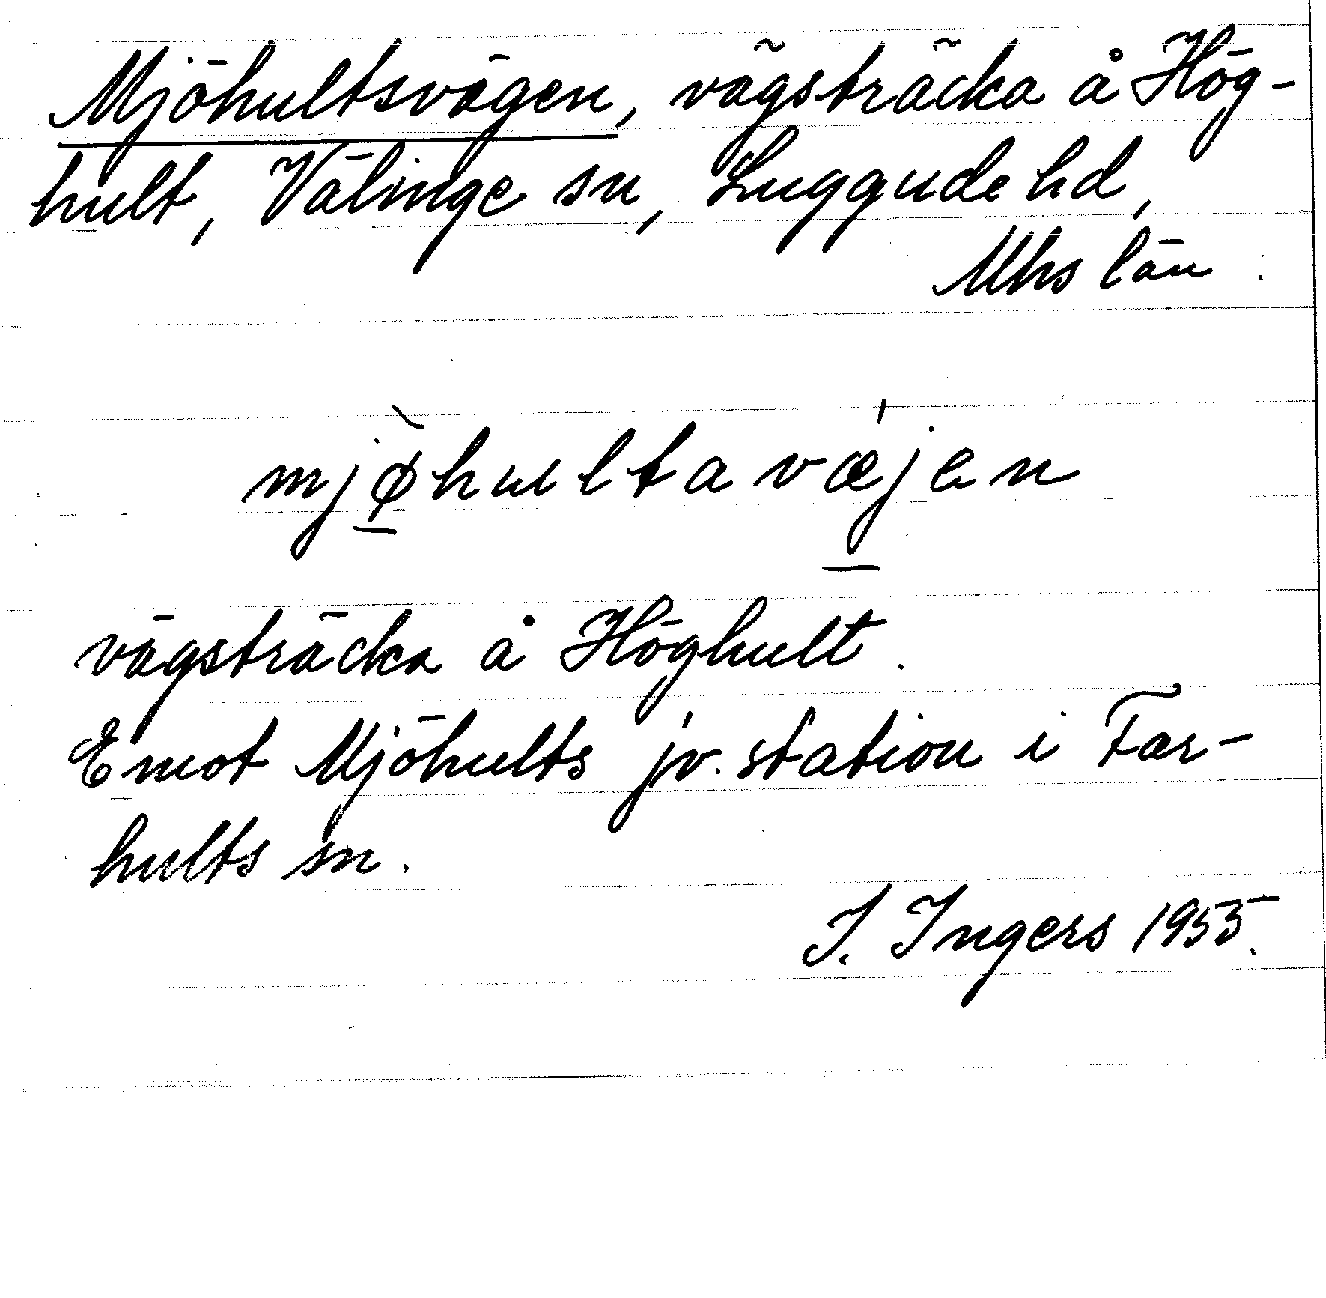 Mjöhultsvägen, vägsträcka å Hög-
hult, Välinge sn, Luggude hd,
Mhs län.
mjø̀hultavǽjen
vägsträcka å Höghult.
Emot Mjöhults jv. station i Far-
hults sn.
I. Ingers 1955.